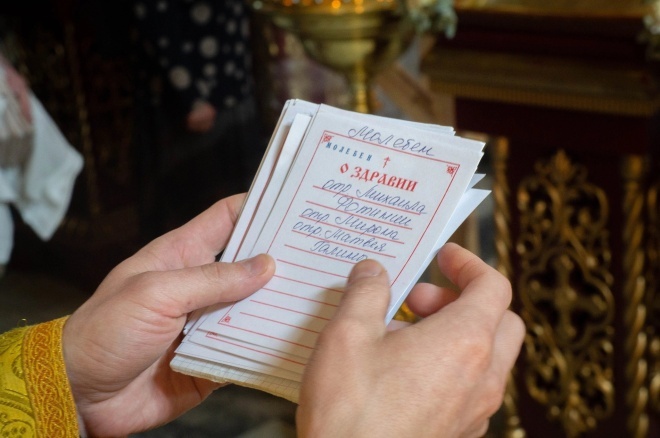 Молебен
МОЛЕБЕН
О ЗДРАВИИ
отр Михаила
Фотинии
отр. Мирона
отр. Матвея
Галины